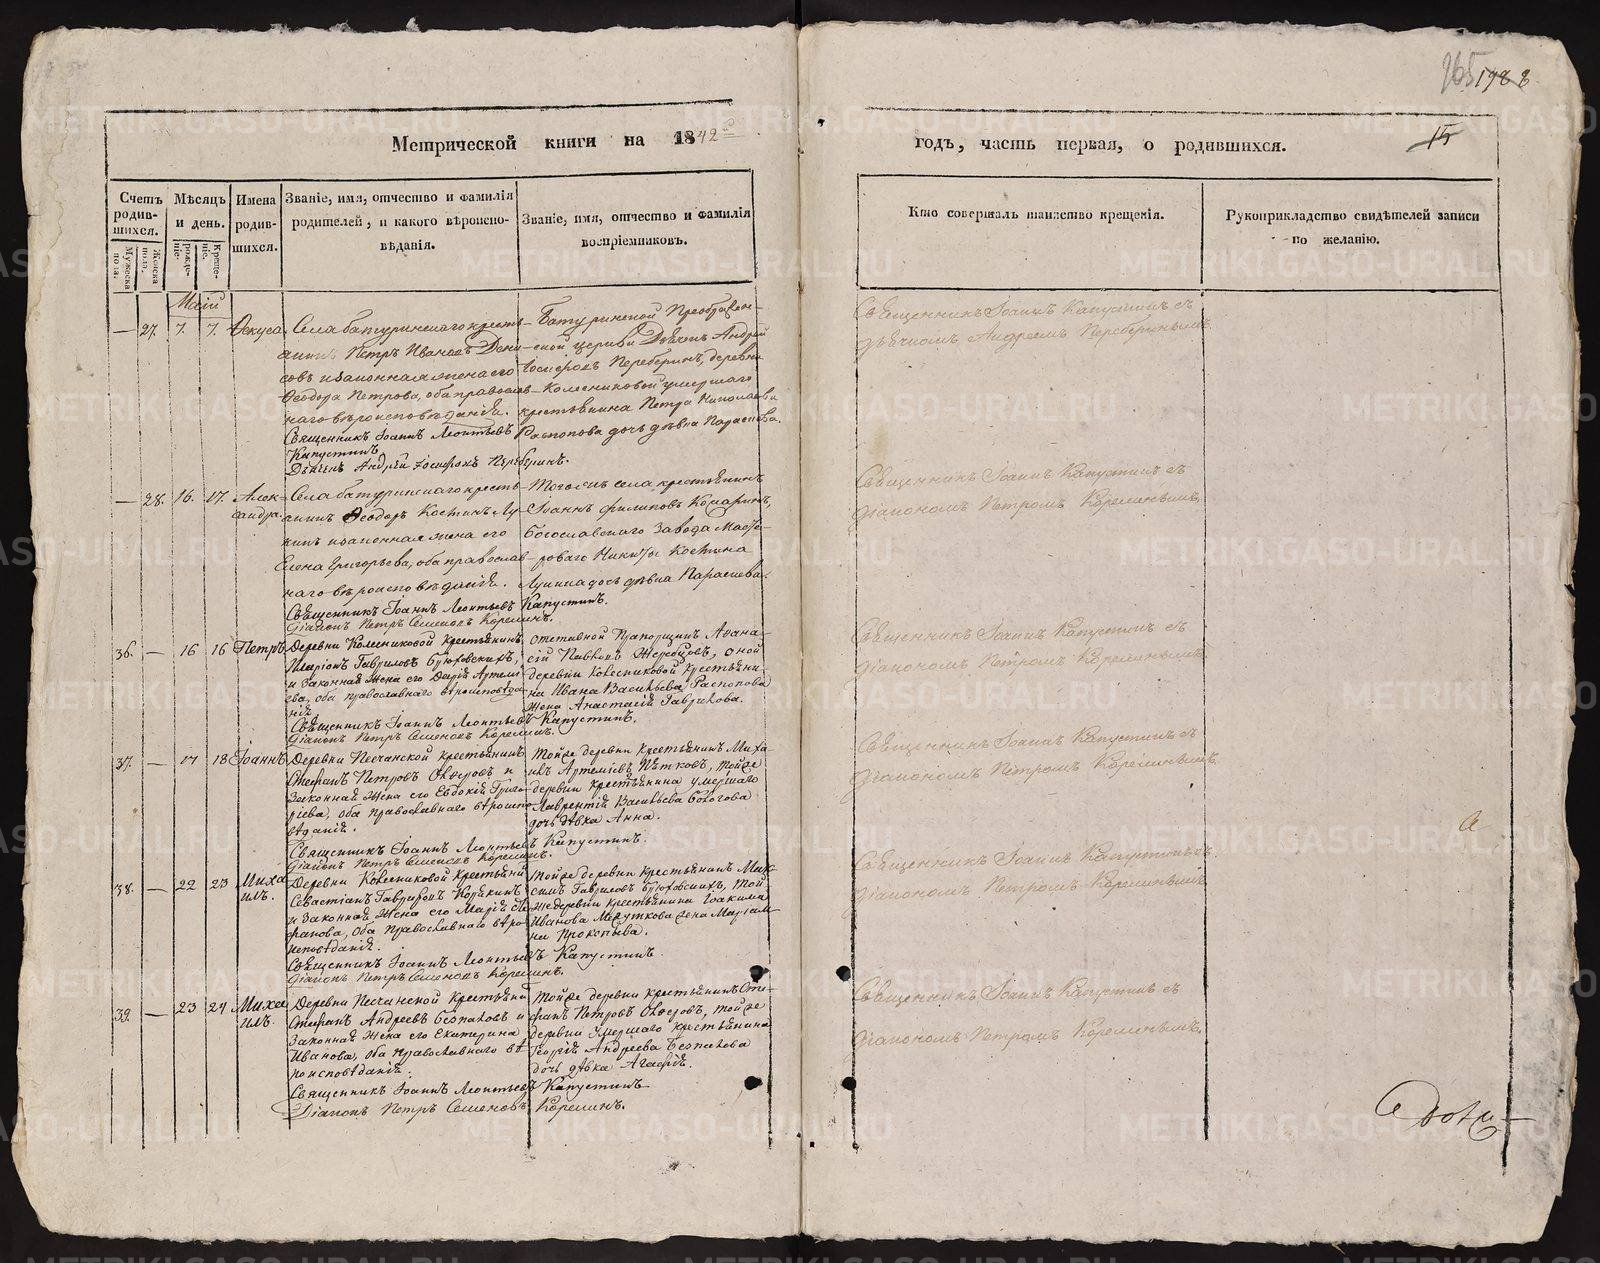 265 1988
15
Метрической книги на 1842й
годъ, часть первая, о родившихся.
Счетъ родив-шихся.
Мужеска пола.
Женска пола.
Мѣсяцъ и день.
рожде-ніе.
креще-ніе.
Имена родив-шихся.
Званіе, имя, отчество и фамилія
родителей, и какого вѣроиспо-
вѣданія.
Званіе, имя, отчество и фамилія
воспріемниковъ.
Кто совершалъ таинство крещенія.
Рукоприкладство свидѣтелей записи
по желанію.
Маій
— 27. 7. 7. Ѳекуса
Села батуринскаго кресть-
янинъ Петръ Ивановъ Дени-
совъ и законная жена его
Ѳеодора Петрова, оба православ-
наго вѣроисповѣданія.
Священникъ Іоаннъ Леонтьевъ
Капустинъ
Дьячекъ Андрей Іосифовъ Переберинъ.
Батуринской Преображен-
ской церкви Дьячекъ Андрей
Іосифовъ Переберинъ, деревни
Колесниковой умершаго
крестьянина Петра Николаева
Распопова дочь дѣвка Параскева.
Священникъ Іоаннъ Капустинъ съ
дьячкомъ Андреемъ Переберинымъ.
— 28. 16. 17. Алек-
сандра.
Села батуринскаго кресть-
янинъ Ѳеодоръ Костинъ Лу-
кинъ и законная жена его
Елена Григорьева, оба православ-
наго вѣроисповѣданія.
Священникъ Іоаннъ Леонтьевъ Капустинъ.
Діаконъ Петръ Семеновъ Корелинъ.
Тогожъ села крестьянинъ
Іоаннъ Филиповъ Комаринъ,
Богословскаго Завода Масте-
роваго Никиты Костина
Лукина дочь дѣвка Параскева.
Священникъ Іоаннъ Капустинъ съ
діакономъ Петромъ Корелинымъ.
36. — 16 16 Петръ
Деревни Колесниковой Крестьянинъ
Иларіонъ Гавриловъ Бутовскихъ,
и Законная Жена его Дарія Артемі-
ева, оба православнаго вѣроисповѣда-
нія
Священникъ Іоаннъ Леонтьевъ Капустинъ.
Діаконъ Петръ Семеновъ Корелинъ.
отставной Прапорщикъ Аѳана-
сій Павловъ Жеребцовъ, оной
деревни Колесниковой Крестьяни-
на Ивана Васильева Распопова
Жена Анастасія Гаврилова.
Священникъ Іоаннъ Капустинъ съ
діакономъ Петромъ Корелинымъ
37. — 17 18 Іоаннъ
Деревни Песчанской Крестьянинъ
Стефанъ Петровъ Овѣровъ и
Законная Жена его Евдокія Григо-
рьева, оба православнаго вѣроиспо-
вѣданія.
Священникъ Іоаннъ Леонтьевъ Капустинъ.
Діаконъ Петръ Семеновъ Корелинъ.
Тойже деревни крестьянинъ Миха-
илъ Артеміевъ Пѣтковъ, тойже
деревни крестьянина умершаго
Лаврентія Васильева Боготова
дочь дѣвка Анна.
Священникъ Іоаннъ Капустинъ съ
діакономъ Петромъ Корелинымъ.
38. — 22 23 Миха-
илъ.
Деревни Колесниковой крестьяни
Севастіанъ Гавриловъ Корякинъ
и Законная Жена его Марія Сте-
фанова, оба православнаго вѣро-
исповѣданія.
Священникъ Іоаннъ Леонтьевъ Капустинъ.
Діаконъ Петръ Семеновъ Корелинъ.
Тойже деревни крестьянинъ Мак-
симъ Гавриловъ Бутовскихъ, той
же деревни крестьянина Іоакима
Иванова жена Маріам-
на Прокопьева.
Священникъ Іоаннъ Капустинъ съ
діакономъ Петромъ Корелинымъ
39. — 23 24 Михаи
илъ.
Деревни Песчанской Крестьяни
Стефанъ Андреевъ Безпаловъ и
Законная Жена его Екатерина
Иванова, оба православнаго вѣ-
роисповѣданія.
Священникъ Іоаннъ Леонтьевъ Капустинъ
Діаконъ Петръ Семеновъ Корелинъ.
Тойже деревни крестьянинъ Сте-
фанъ Петровъ Овѣровъ, тойже
деревни умершаго крестьянина
Георгія Андреева Безпалова
дочь дѣвка Агафія.
Священникъ Іоаннъ Капустинъ съ
діакономъ Петромъ Корелинымъ.
METRIKI.GASO-URAL.RU